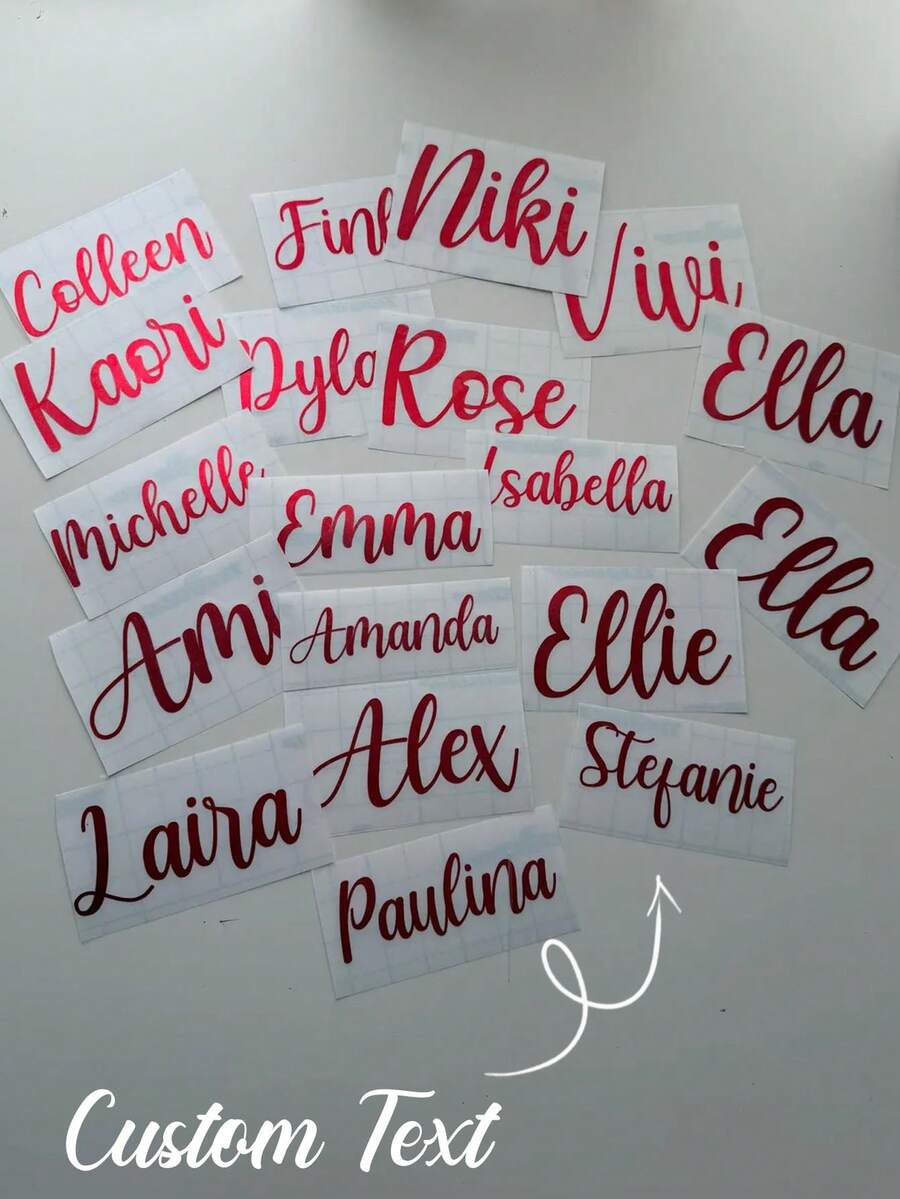 Niki
Colleen
Finl
Vivi
Kaori
Dyla
Rose
Ella
Michelle
Emma
Isabella
Ella
Ami
Amanda
Ellie
Alex
Stefanie
Laira
Paulina
Custom Text